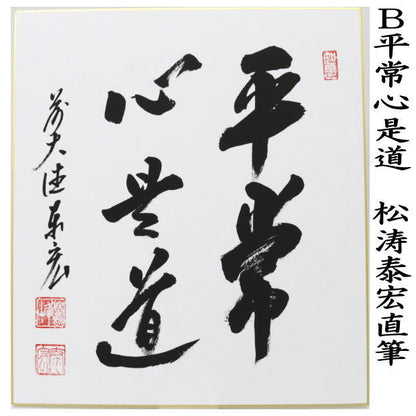 B平常心是道　松涛泰宏直筆
平常
心是道
前大徳泰宏